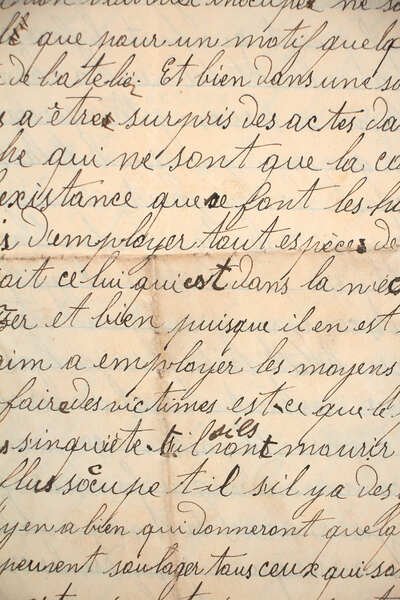 que pour un motif quelq
de l'atelier Et bien dans une so
a êtres surpris des actes da
he qui ne sont que la co
existance que font les hu
d'employer tout espèces de
ait celui qui est dans la néc
er et bien puisque il en est
aim a employer les moyens
faire des victimes est-ce que le
s inquiéte-t-il sils sont mourir
Plus socupe t il sil ya des
yen a bien qui donneront quelq
peuvent soulager tous ceux qui so